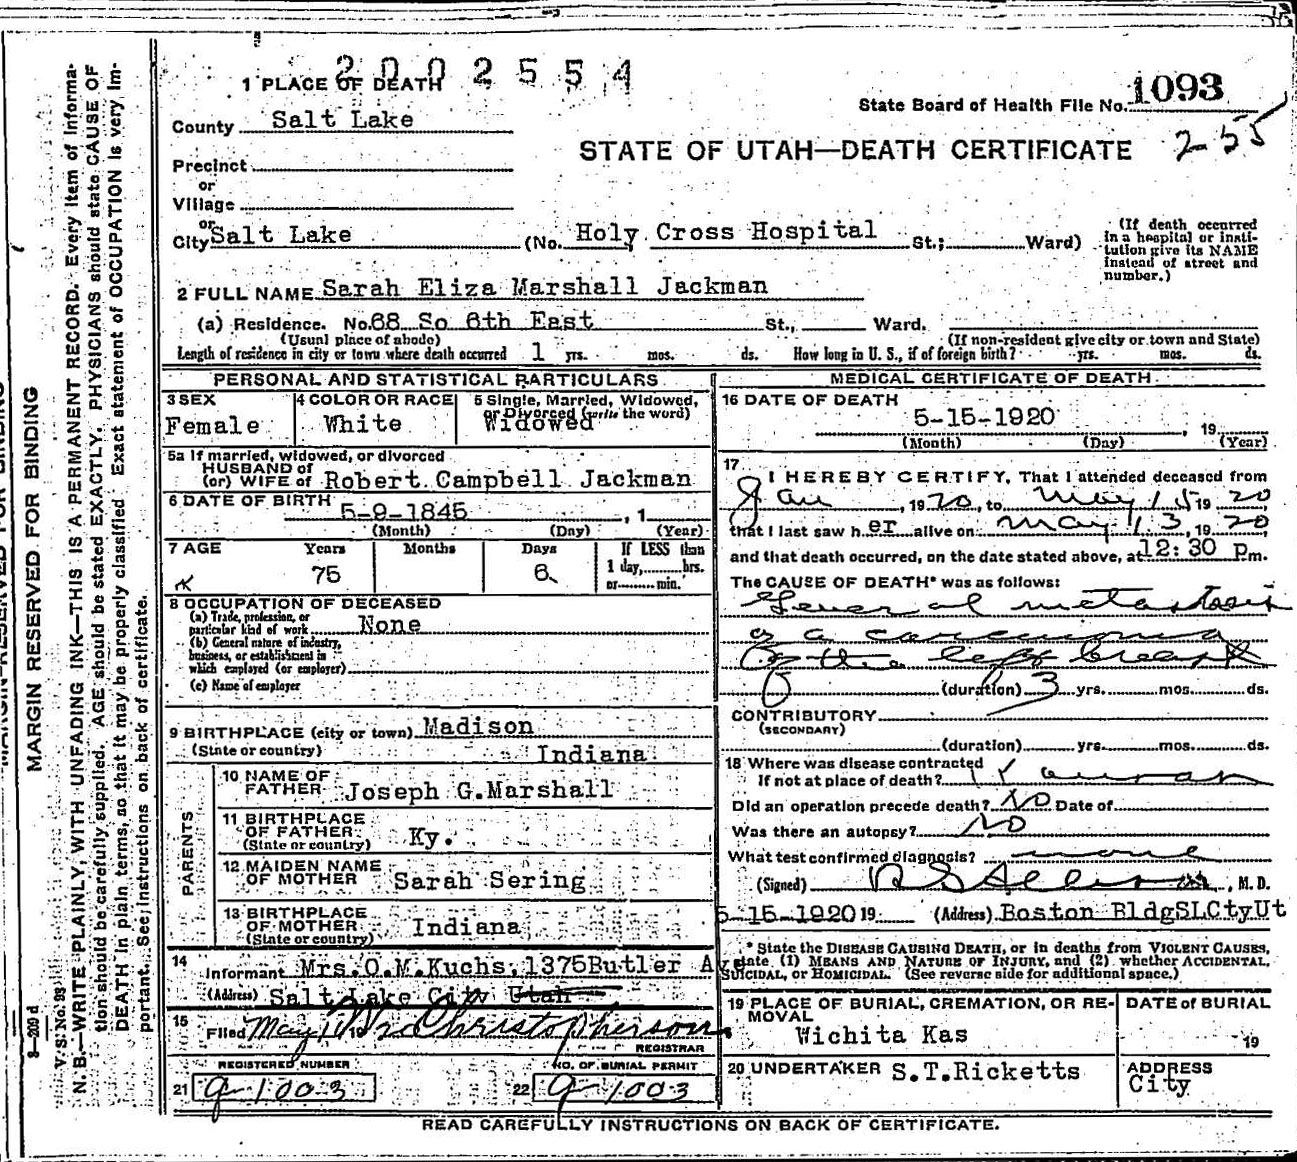 2002554
1 PLACE OF DEATH
State Board of Health File No. 1093
County Salt Lake
255
STATE OF UTAH—DEATH CERTIFICATE
Precinct
or
Village
or
City Salt Lake (No. Holy Cross Hospital St.; Ward)
(If death occurred in a hospital or institution give its NAME instead of street and number.)
2 FULL NAME Sarah Eliza Marshall Jackman
(a) Residence. No. 68 So 6th East St., Ward.
(Usual place of abode) (If non-resident give city or town and State)
Length of residence in city or town where death occurred 1 yrs. mos. ds. How long in U. S., if of foreign birth? yrs. mos. ds.
PERSONAL AND STATISTICAL PARTICULARS
3 SEX
Female
4 COLOR OR RACE
White
5 Single, Married, Widowed,
or Divorced (write the word)
Widowed
5a If married, widowed, or divorced
HUSBAND of
(or) WIFE of Robert Campbell Jackman
6 DATE OF BIRTH
5-9-1845 , 1
(Month) (Day) (Year)
7 AGE Years Months Days If LESS than
75 6 1 day, hrs.
or min.
8 OCCUPATION OF DECEASED
(a) Trade, profession, or
particular kind of work None
(b) General nature of industry,
business, or establishment in
which employed (or employer)
(c) Name of employer
9 BIRTHPLACE (city or town) Madison
(State or country) Indiana
PARENTS
10 NAME OF
FATHER Joseph G. Marshall
11 BIRTHPLACE
OF FATHER Ky.
(State or country)
12 MAIDEN NAME
OF MOTHER Sarah Sering
13 BIRTHPLACE
OF MOTHER Indiana
(State or country)
14
Informant Mrs. O. M. Kuchs, 1375 Butler Av
(Address) Salt Lake City Utah
15
Filed May 19 Christopherson
REGISTRAR
REGISTERED NUMBER NO. OF BURIAL PERMIT
21 9-1003 22 9-1003
MEDICAL CERTIFICATE OF DEATH
16 DATE OF DEATH
5-15-1920 , 19
(Month) (Day) (Year)
17
I HEREBY CERTIFY, That I attended deceased from
Jan , 1920, to May 15 1920
that I last saw her alive on May 13, 1920
and that death occurred, on the date stated above, at 12:30 Pm.
The CAUSE OF DEATH* was as follows:
General metastosis
of a carcinoma
of the left breast
(duration) 3 yrs. mos. ds.
CONTRIBUTORY
(SECONDARY)
(duration) yrs. mos. ds.
18 Where was disease contracted
If not at place of death? Kansas
Did an operation precede death? No Date of
Was there an autopsy? No
What test confirmed diagnosis? none
(Signed) , M. D.
5-15-1920 19 (Address) Boston BldgSLCtyUt
* State the DISEASE CAUSING DEATH, or in deaths from VIOLENT CAUSES,
state (1) MEANS AND NATURE OF INJURY, and (2) whether ACCIDENTAL,
SUICIDAL, or HOMICIDAL. (See reverse side for additional space.)
19 PLACE OF BURIAL, CREMATION, OR RE-
MOVAL
Wichita Kas
DATE of BURIAL
19
20 UNDERTAKER S.T.Ricketts
ADDRESS
City
READ CAREFULLY INSTRUCTIONS ON BACK OF CERTIFICATE.
MARGIN RESERVED FOR BINDING
V. S. No. 93
N. B.—WRITE PLAINLY, WITH UNFADING INK—THIS IS A PERMANENT RECORD. Every item of informa-
tion should be carefully supplied. AGE should be stated EXACTLY. PHYSICIANS should state CAUSE OF
DEATH in plain terms, so that it may be properly classified. Exact statement of OCCUPATION is very im-
portant. See instructions on back of certificate.